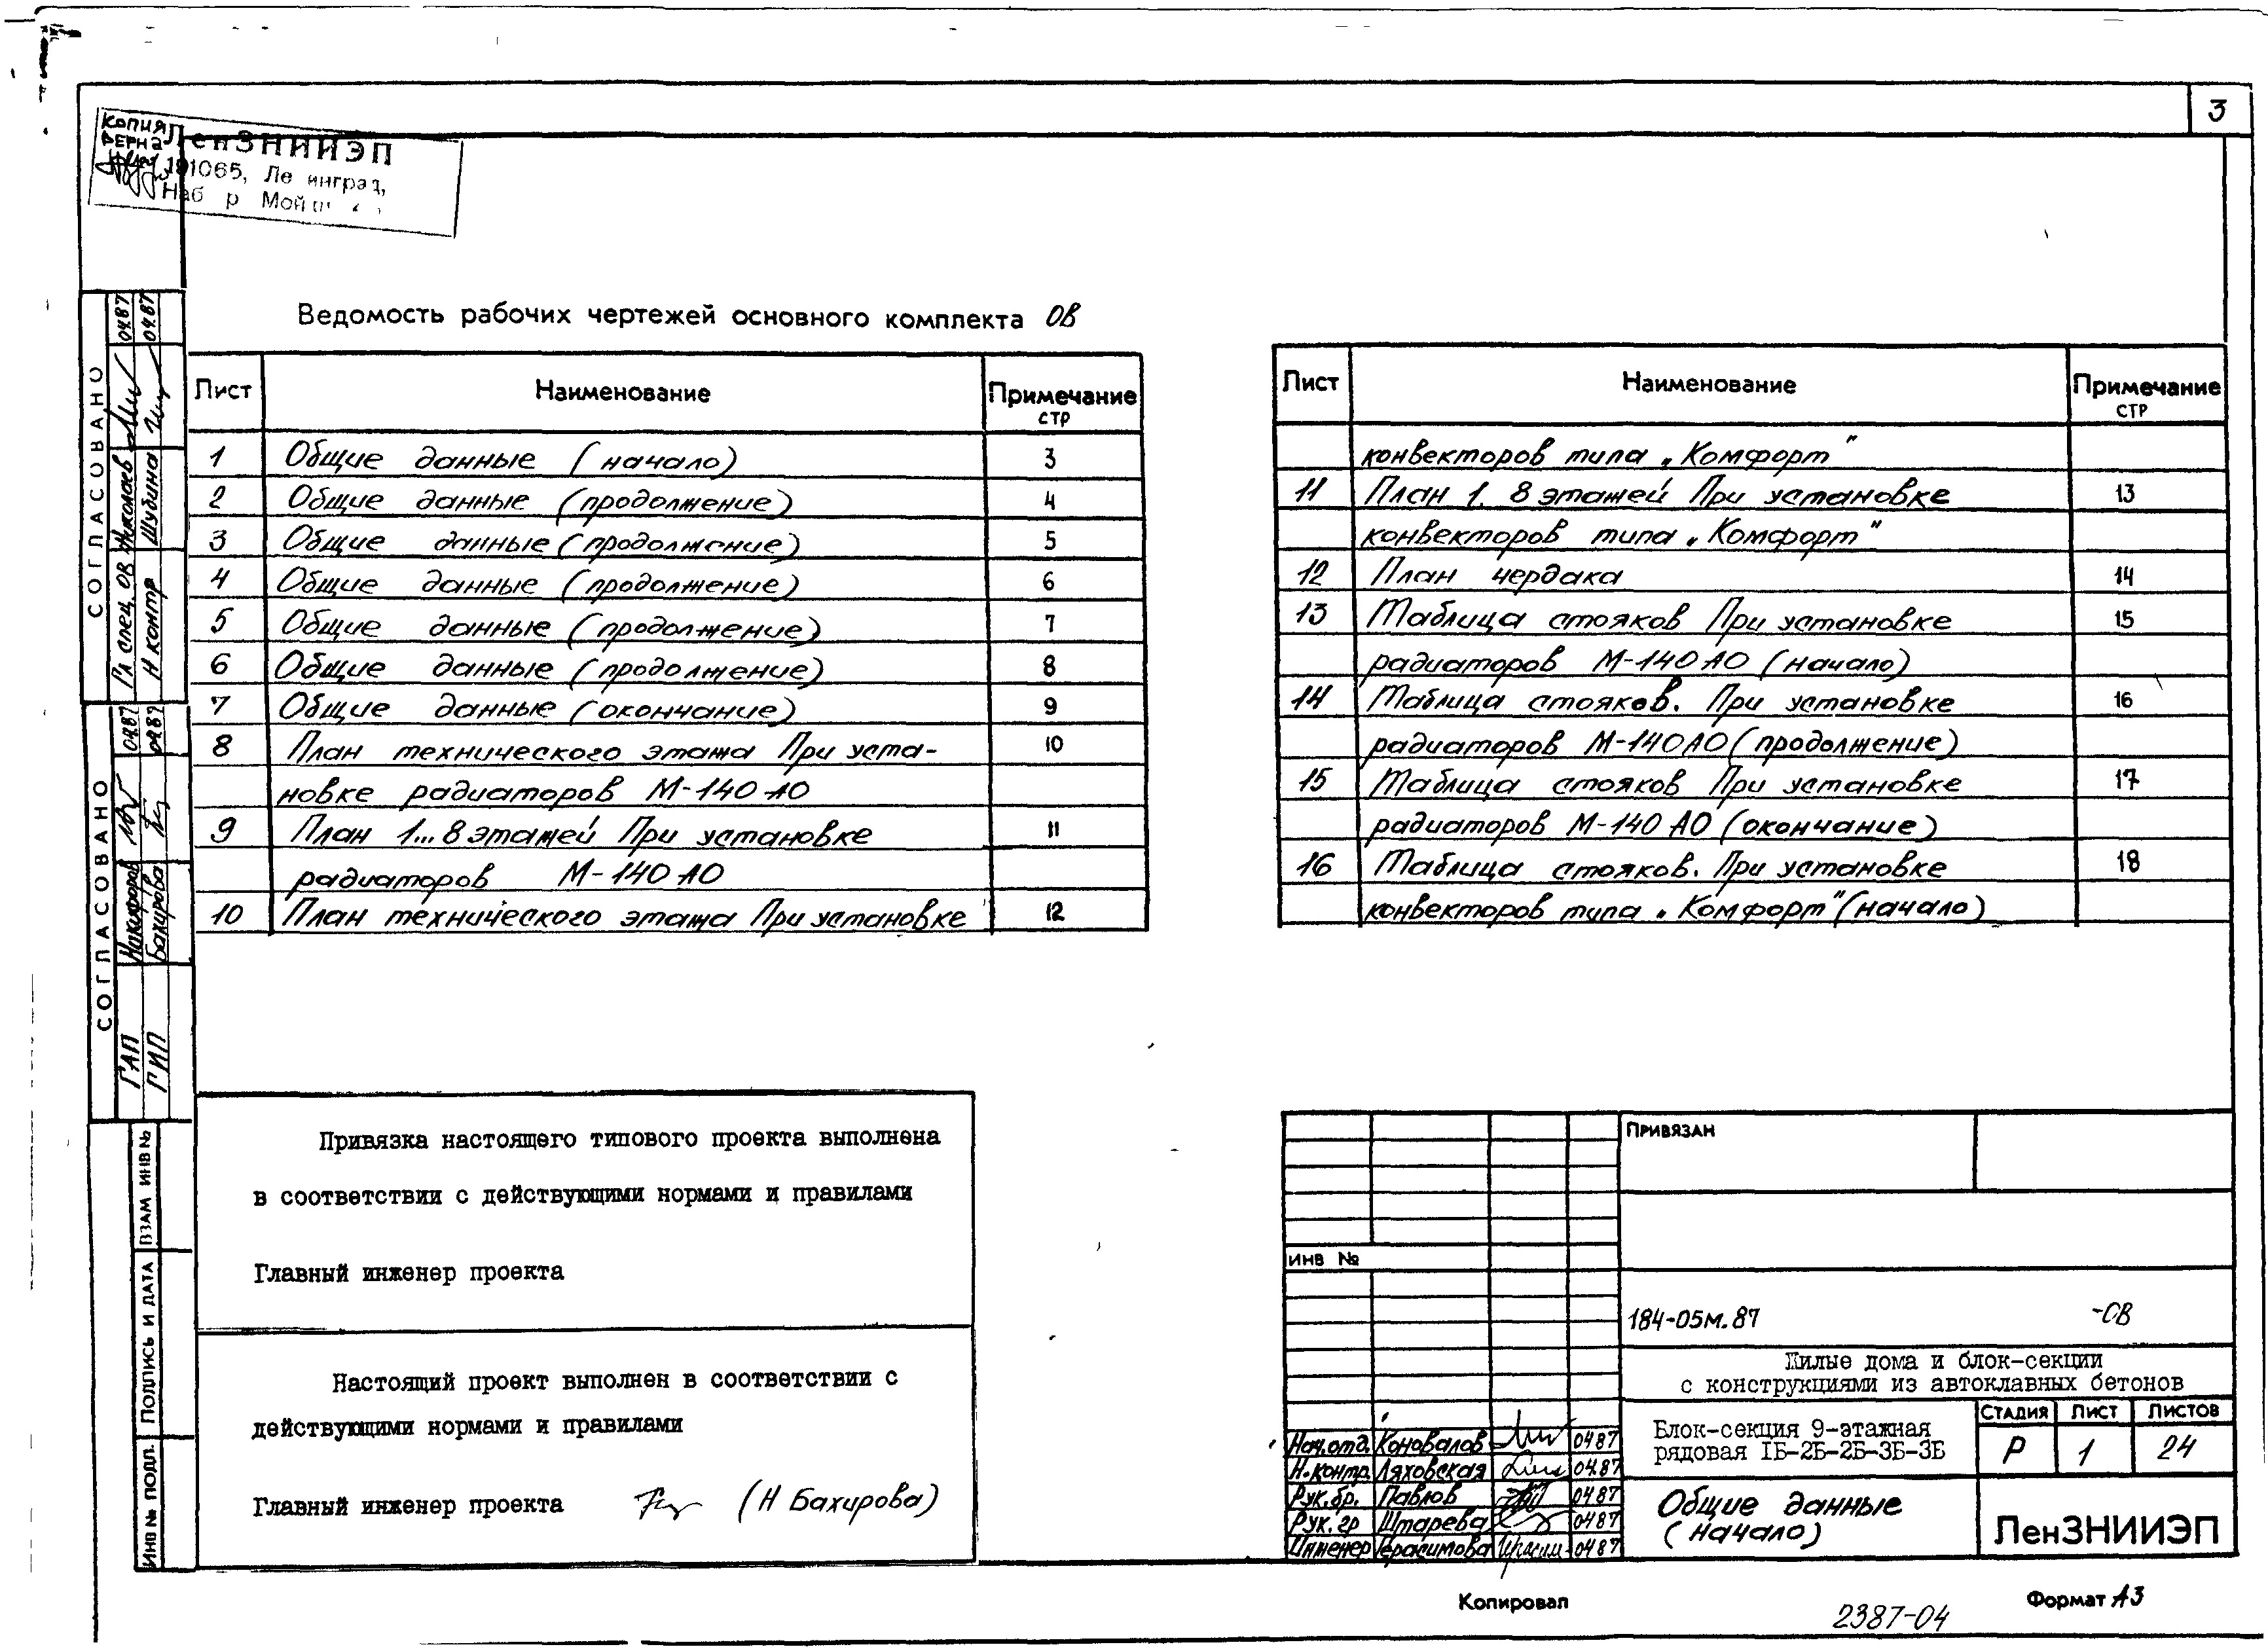 3
КОПИЯ
ВЕРНА
ЛенЗНИИЭП
191065, Ле инград,
Наб р Мой
Ведомость рабочих чертежей основного комплекта ОВ
Лист Наименование Примечание стр
1 Общие данные (начало) 3
2 Общие данные (продолжение) 4
3 Общие данные (продолжение) 5
4 Общие данные (продолжение) 6
5 Общие данные (продолжение) 7
6 Общие данные (продолжение) 8
7 Общие данные (окончание) 9
8 План технического этажа При уста- 10
новке радиаторов М-140 АО
9 План 1...8 этажей При установке 11
радиаторов М-140 АО
10 План технического этажа При установке 12
Лист Наименование Примечание стр
конвекторов типа „Комфорт"
11 План 1. 8 этажей При установке 13
конвекторов типа „Комфорт"
12 План чердака 14
13 Таблица стояков При установке 15
радиаторов М-140 АО (начало)
14 Таблица стояков. При установке 16
радиаторов М-140 АО (продолжение)
15 Таблица стояков При установке 17
радиаторов М-140 АО (окончание)
16 Таблица стояков. При установке 18
конвекторов типа „Комфорт" (начало)
СОГЛАСОВАНО
Гл спец ОВ Николаев 04.87
Н контр Шубина 04.87
СОГЛАСОВАНО
ГАП Никифоров 04.87
ГИП Бахирова 04.87
ВЗАМ ИНВ №
ПОДПИСЬ И ДАТА
ИНВ № ПОДЛ.
Привязка настоящего типового проекта выполнена
в соответствии с действующими нормами и правилами
Главный инженер проекта
Настоящий проект выполнен в соответствии с
действующими нормами и правилами
Главный инженер проекта (Н Бахирова)
ПРИВЯЗАН
ИНВ №
184-05м.87 -ОВ
Жилые дома и блок-секции
с конструкциями из автоклавных бетонов
Блок-секция 9-этажная
рядовая 1Б-2Б-2Б-3Б-3Б
СТАДИЯ ЛИСТ ЛИСТОВ
Р 1 24
Нач.отд. Коновалов 04 87
Н.контр. Ляховская 04.87
Рук.бр. Павлов 04 87
Рук. гр Штарева 04 87
Инженер Герасимова 04 87
Общие данные
(начало)
ЛенЗНИИЭП
Копировал
2387-04
Формат А3